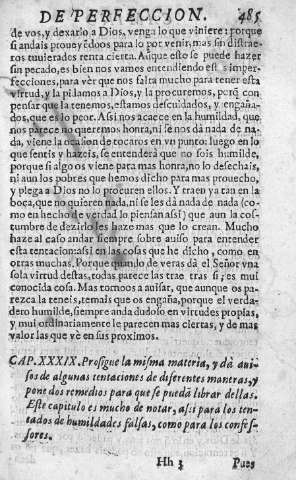 DE PERFECCION. 485
de vos, y dexarlo a Dios, venga lo que viniere: porque
si andais proueyẽdoos para lo por venir, mas sin distrae-
ros tuuierades renta cierta. Aũque esto se puede hazer
sin pecado, es bien nos vamos entendiendo estas imper-
fecciones, para vèr que nos falta mucho para tener esta
virtud, y la pidamos a Dios, y la procuremos, porq̃ con
pensar que la tenemos, estamos descuidados, y engaña-
dos, que es lo peor. Assi nos acaece en la humildad, que
nos parece no queremos honra, ni se nos dà nada de na-
da, viene la ocasion de tocaros en vn punto: luego en lo
que sentis y hazeis, se entenderà que no sois humilde,
porque si algo os viene para mas honra, no lo desechais,
ni aun los pobres que hemos dicho para mas prouecho,
y plega a Dios no lo procuren ellos. Y traen ya tan en la
boca, que no quieren nada, ni se les dà nada de nada (co-
mo en hecho de verdad lo piensan assi) que aun la cos-
tumbre de dezirlo les haze mas que lo crean. Mucho
haze al caso andar siempre sobre auiso para entender
esta tentacion assi en las cosas que he dicho, como en
otras muchas. Porque quando de veras dà el Señor vna
sola virtud destas, todas parece las trae tras si, es mui
conocida cosa. Mas tornoos a auisar, que aunque os pa-
rezca la teneis, temais que os engaña, porque el verda-
dero humilde, siempre anda dudoso en virtudes propias,
y mui ordinariamente le parecen mas ciertas, y de mas
valor las que vè en sus proximos.
CAP. XXXIX. Prosigue la misma materia, y dà aui-
sos de algunas tentaciones de diferentes maneras, y
pone dos remedios para que se pueda librar dellas.
Este capitulo es mucho de notar, assi para los ten-
tados de humildades falsas, como para los confes-
sores.
Hh 3 Pues